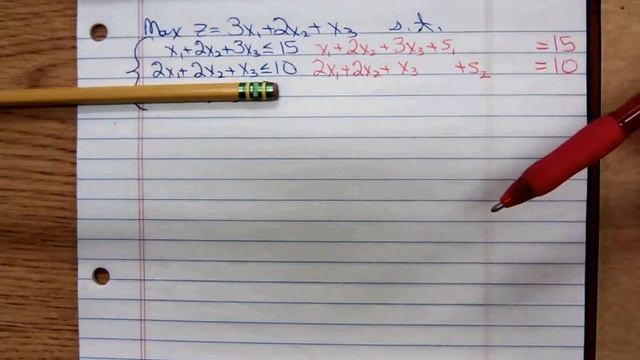 Max z = 3x₁+2x₂+x₃ s.t.
x₁+2x₂+3x₃≤15 x₁+2x₂+3x₃+s₁ =15
2x₁+2x₂+x₃≤10 2x₁+2x₂+x₃ +s₂ =10